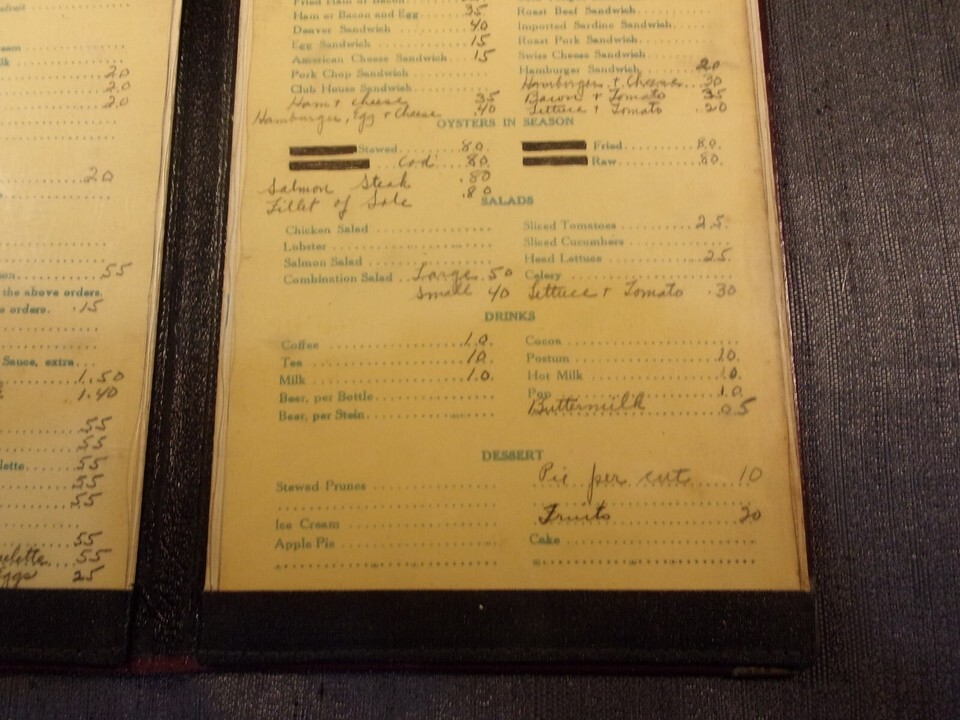 20
20
20
20
55
the above orders.
orders. .15
Sauce, extra
1.50
1.40
55
55
55
55
55
55
55
Eggs 25
Fried Ham or Bacon
Ham or Bacon and Egg 35
Denver Sandwich 40
Egg Sandwich 15
American Cheese Sandwich 15
Pork Chop Sandwich
Club House Sandwich
Ham & cheese 35
Hamburger, Egg & Cheese .40
Roast Beef Sandwich
Imported Sardine Sandwich
Roast Pork Sandwich
Swiss Cheese Sandwich
Hamburger Sandwich 20
Hamburger & Cheese 30
Bacon & Tomato 35
Lettuce & Tomato .20
OYSTERS IN SEASON
Stewed 80
Cod 80
Salmon Steak .80
Fillet of Sole .80
Fried 80
Raw 80
SALADS
Chicken Salad
Lobster
Salmon Salad
Combination Salad Large 50
Small 40
Sliced Tomatoes 25
Sliced Cucumbers
Head Lettuce 25
Celery
Lettuce & Tomato .30
DRINKS
Coffee 10
Tea 10
Milk 10
Beer, per Bottle
Beer, per Stein
Cocoa
Postum 10
Hot Milk 10
Pop 10
Buttermilk 05
DESSERT
Stewed Prunes
Ice Cream
Apple Pie
Pie per cut 10
Fruits 20
Cake